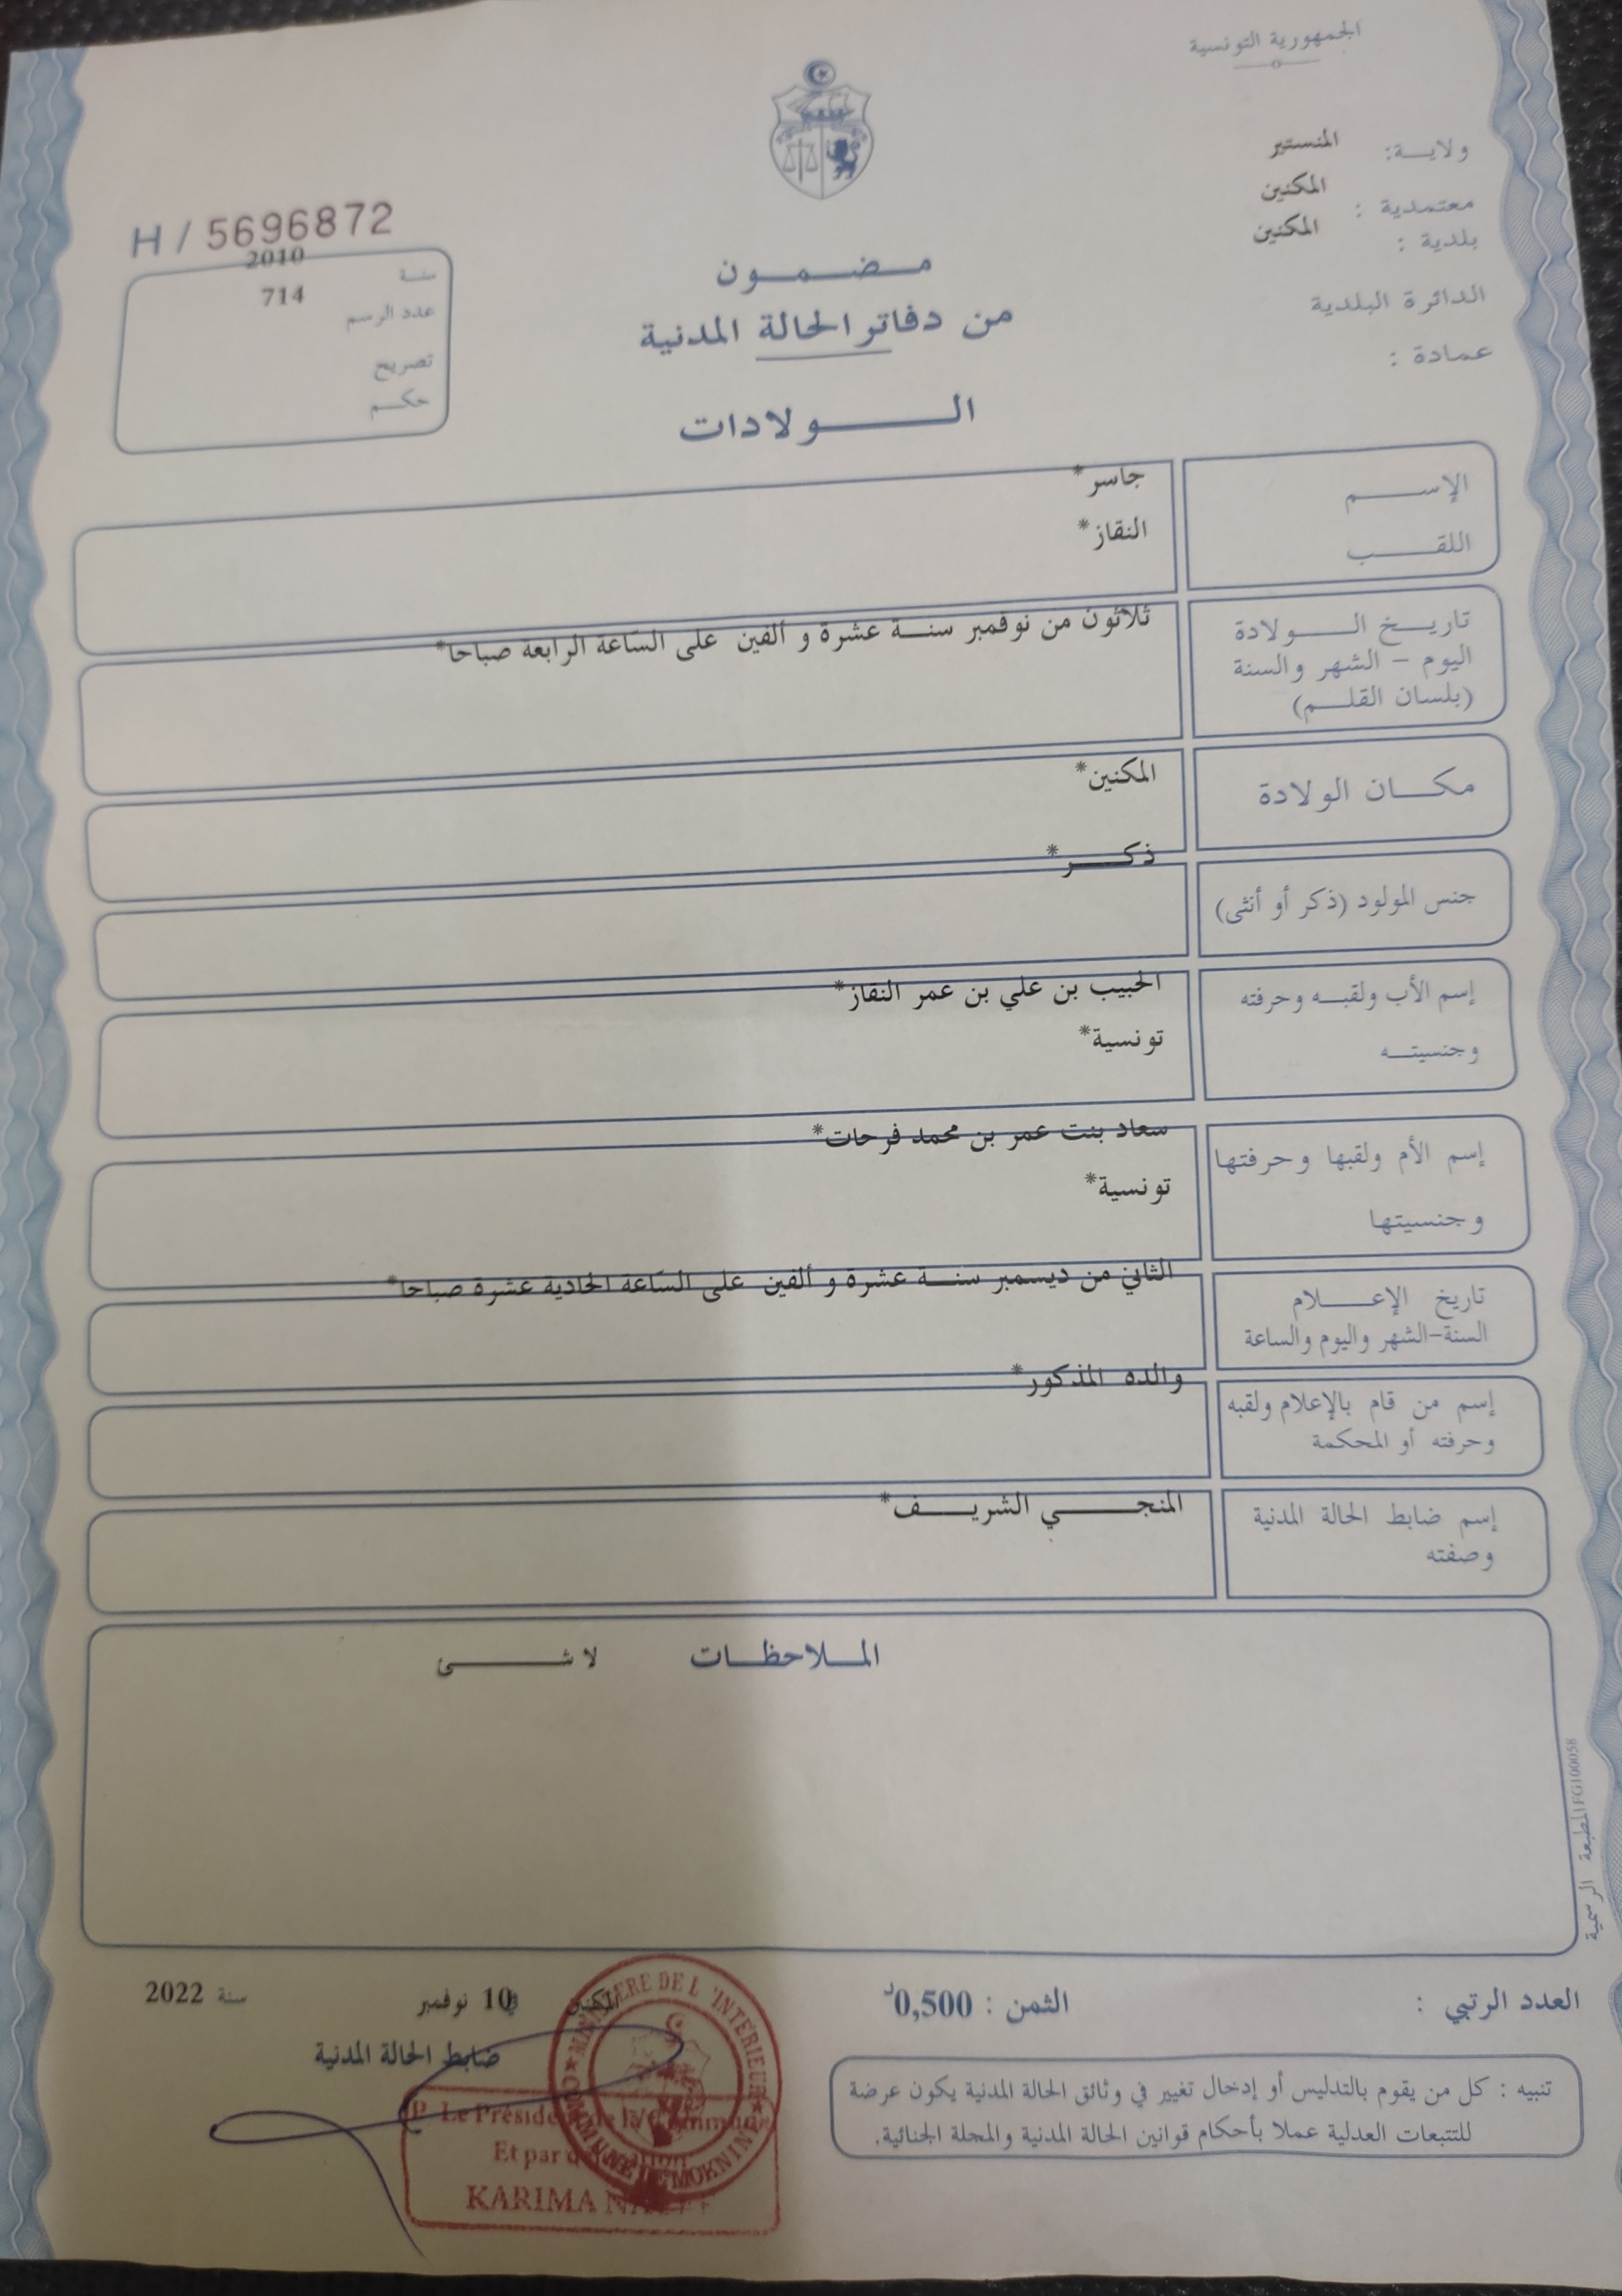 الجمهورية التونسية
ولايـــة: المنستير
معتمدية : المكنين
بلدية : المكنين
الدائرة البلدية
عمادة :
H / 5696872
سنة 2010
عدد الرسم 714
تصريح
حكـــم
مـــضـــمـــون
من دفاتر الحالة المدنية
الـــــــولادات
الإســـــم جاسر*
اللقـــــب النقاز*
تاريـــخ الـــــولادة ثلاثون من نوفمبر سنـــة عشرة و ألفين على السّاعة الرابعة صباحا*
اليوم – الشهر والسنة
(بلسان القلـــم)
مكـــان الولادة المكنين*
جنس المولود (ذكر أو أنثى) ذكـــــر*
إسم الأب ولقبـــه وحرفته الحبيب بن علي بن عمر النقاز*
وجنسيتـــه تونسية*
إسم الأم ولقبها وحرفتها سعاد بنت عمر بن محمد فرحات*
وجنسيتها تونسية*
تاريخ الإعـــــلام الثاني من ديسمبر سنـــة عشرة و ألفين على السّاعة الحادية عشرة صباحا*
السنة–الشهر واليوم والساعة
إسم من قام بالإعلام ولقبه والده المذكور*
وحرفته أو المحكمة
إسم ضابط الحالة المدنية المنجـــــــي الشريـــــف*
وصفته
المـــلاحظـــات لا شـــــــئ
المطبعة الرسمية FG100058
العدد الرتبي :
الثمن : 0,500د
في 10 نوفمبر سنة 2022
ضابط الحالة المدنية
MINISTERE DE L'INTERIEUR
COMMUNE DE MOKNINE
P. Le Président de la Commune
Et par délégation
KARIMA
تنبيه : كل من يقوم بالتدليس أو إدخال تغيير في وثائق الحالة المدنية يكون عرضة
للتتبعات العدلية عملا بأحكام قوانين الحالة المدنية والمجلة الجنائية.